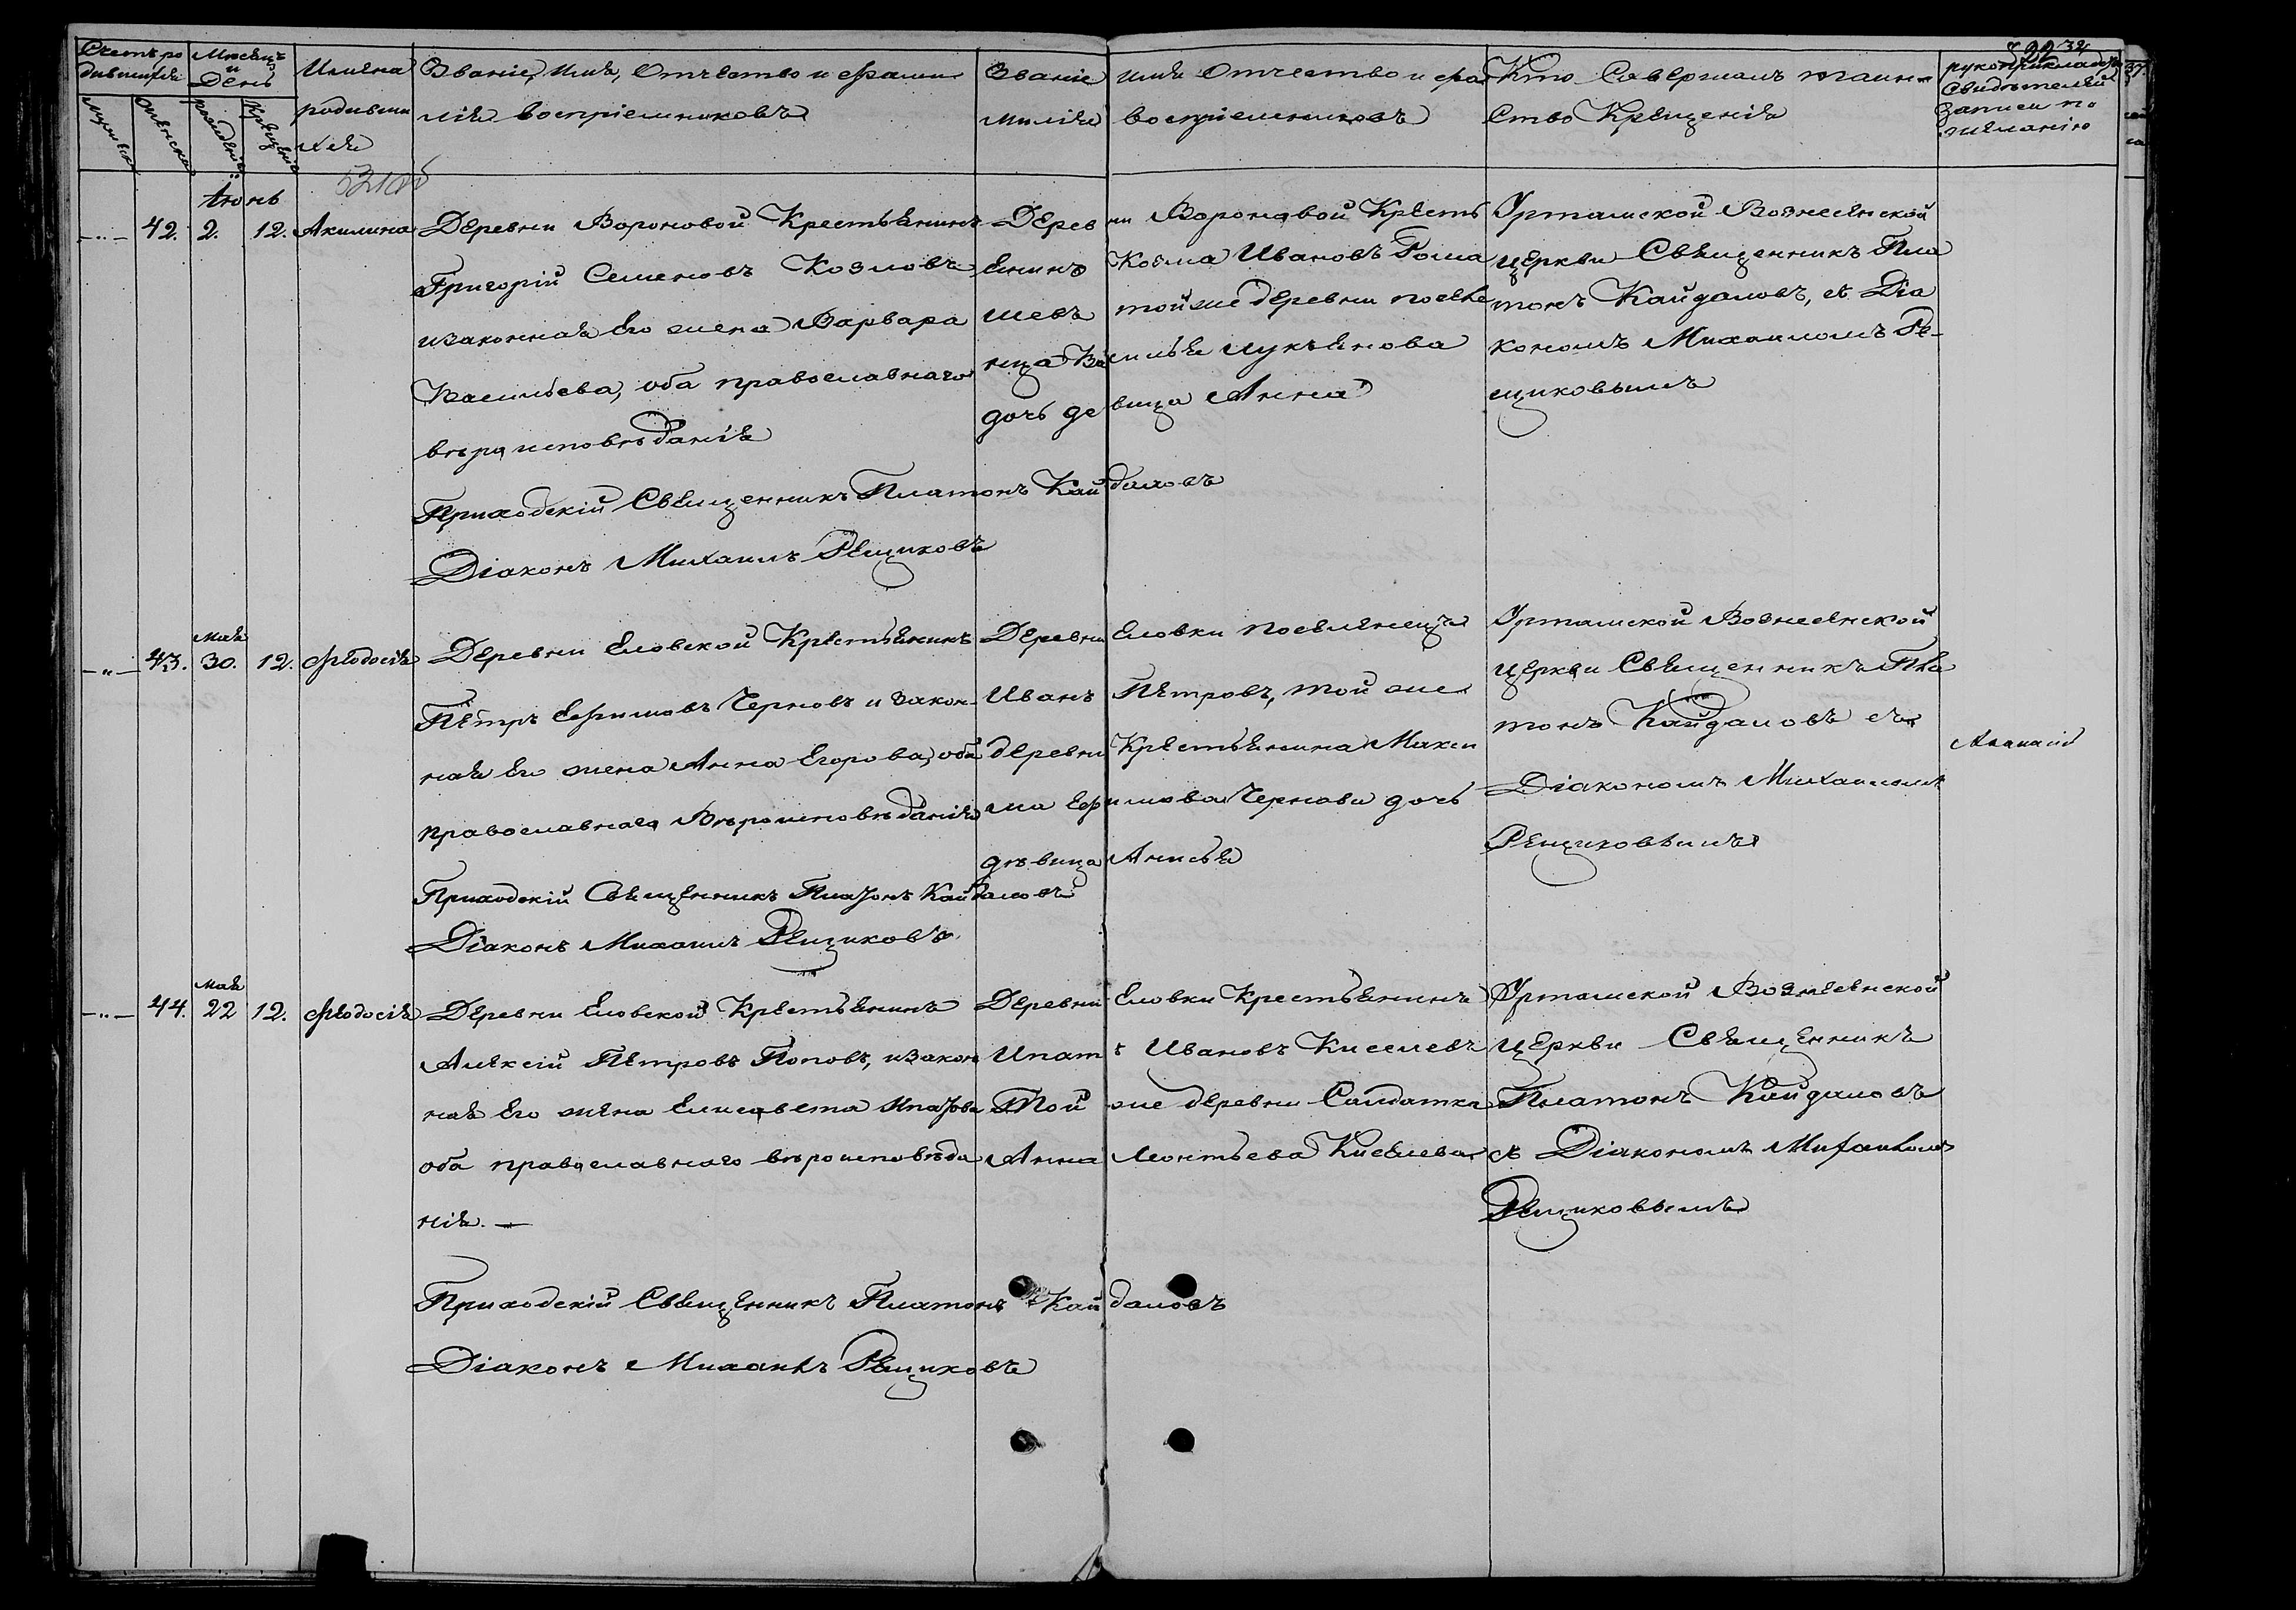 Счетъ ро
дившихся
Мужеска
Женска
Мѣсяцъ
и
День
рожденія
Крещенія
Имена
родивши
хся
Званіе, имя, Отчество и фами
лія воспріемниковъ
Званіе имя Отчество и фа
милія воспріемниковъ
Кто Совершалъ таин-
ство Крещенія
22 32
рукоприкладство
свидѣтелей
записи по
желанію
Іюнь
—"— 42. 2. 12. Акилина
Деревни Вороновой Крестьянинъ
Григорій Семеновъ Козловъ
изаконная Его жена Варвара
Васильева, оба православнаго
вѣроисповѣданія
Приходскій Священникъ Платонъ Кайдаловъ
Діаконъ Михаилъ Рещиковъ
Деревни Вороновой Кресть
янинъ Козма Ивановъ Рома
шевъ тойже деревни поселе
нца Василья лукьянова
дочь девица Анна
Урташской Вознесенской
церкви Священникъ Пла
тонъ Кайдаловъ, съ Діа
кономъ Михаиломъ Ре-
щиковымъ
Мая
—"— 43. 30. 12. Феодосія
Деревни Еловской Крестьянинъ
Петръ Ефимовъ Черновъ и закон-
ная Его жена Анна Егорова, оба
православнаго Вѣроисповѣданія
Приходскій Священникъ Платонъ Кайдаловъ
Діаконъ Михаилъ Рещиковъ
Деревни Еловки поселенецъ
Иванъ Петровъ, той же
деревни Крестьянина Макси
ма Ефимова Чернова дочь
дѣвица Анисья
Урташской Вознесенской
церкви Священникъ Пла
тонъ Кайдаловъ съ
Діакономъ Михаиломъ
Рещиковымъ
Мая
—"— 44. 22 12. Феодосія
Деревни Еловской Крестьянинъ
Алексій Петровъ Поповъ, изакон
ная Его жена Елисавета Ипатова
оба православнаго вѣроисповѣда
нія. —
Приходскій Священникъ Платонъ Кайдаловъ
Діаконъ Михаилъ Рещиковъ
Деревни Еловки Крестьянинъ
Ипатъ Ивановъ Киселевъ
Той же деревни Салдатка
Анна Леонтьева Киселева
Урташской Вознесенской
церкви Священникъ
Платонъ Кайдаловъ
съ Діакономъ Михаиломъ
Рещиковымъ